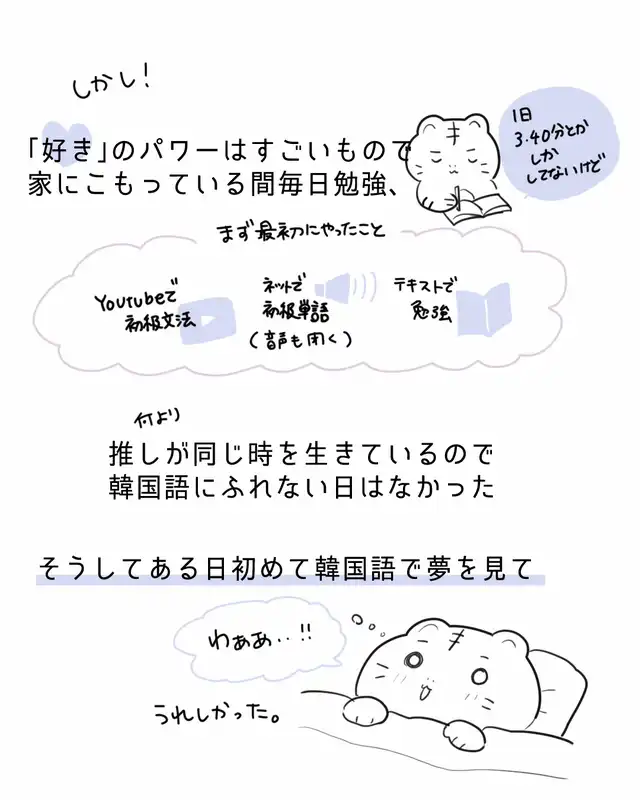 しかし！
「好き」のパワーはすごいもので
家にこもっている間毎日勉強、
1日
3.40分とか
しか
してないけど
まず最初にやったこと
Youtubeで
初級文法
ネットで
初級単語
（音声も聞く）
テキストで
勉強
何より
推しが同じ時を生きているので
韓国語にふれない日はなかった
そうしてある日初めて韓国語で夢を見て
わぁあ‥!!
うれしかった。